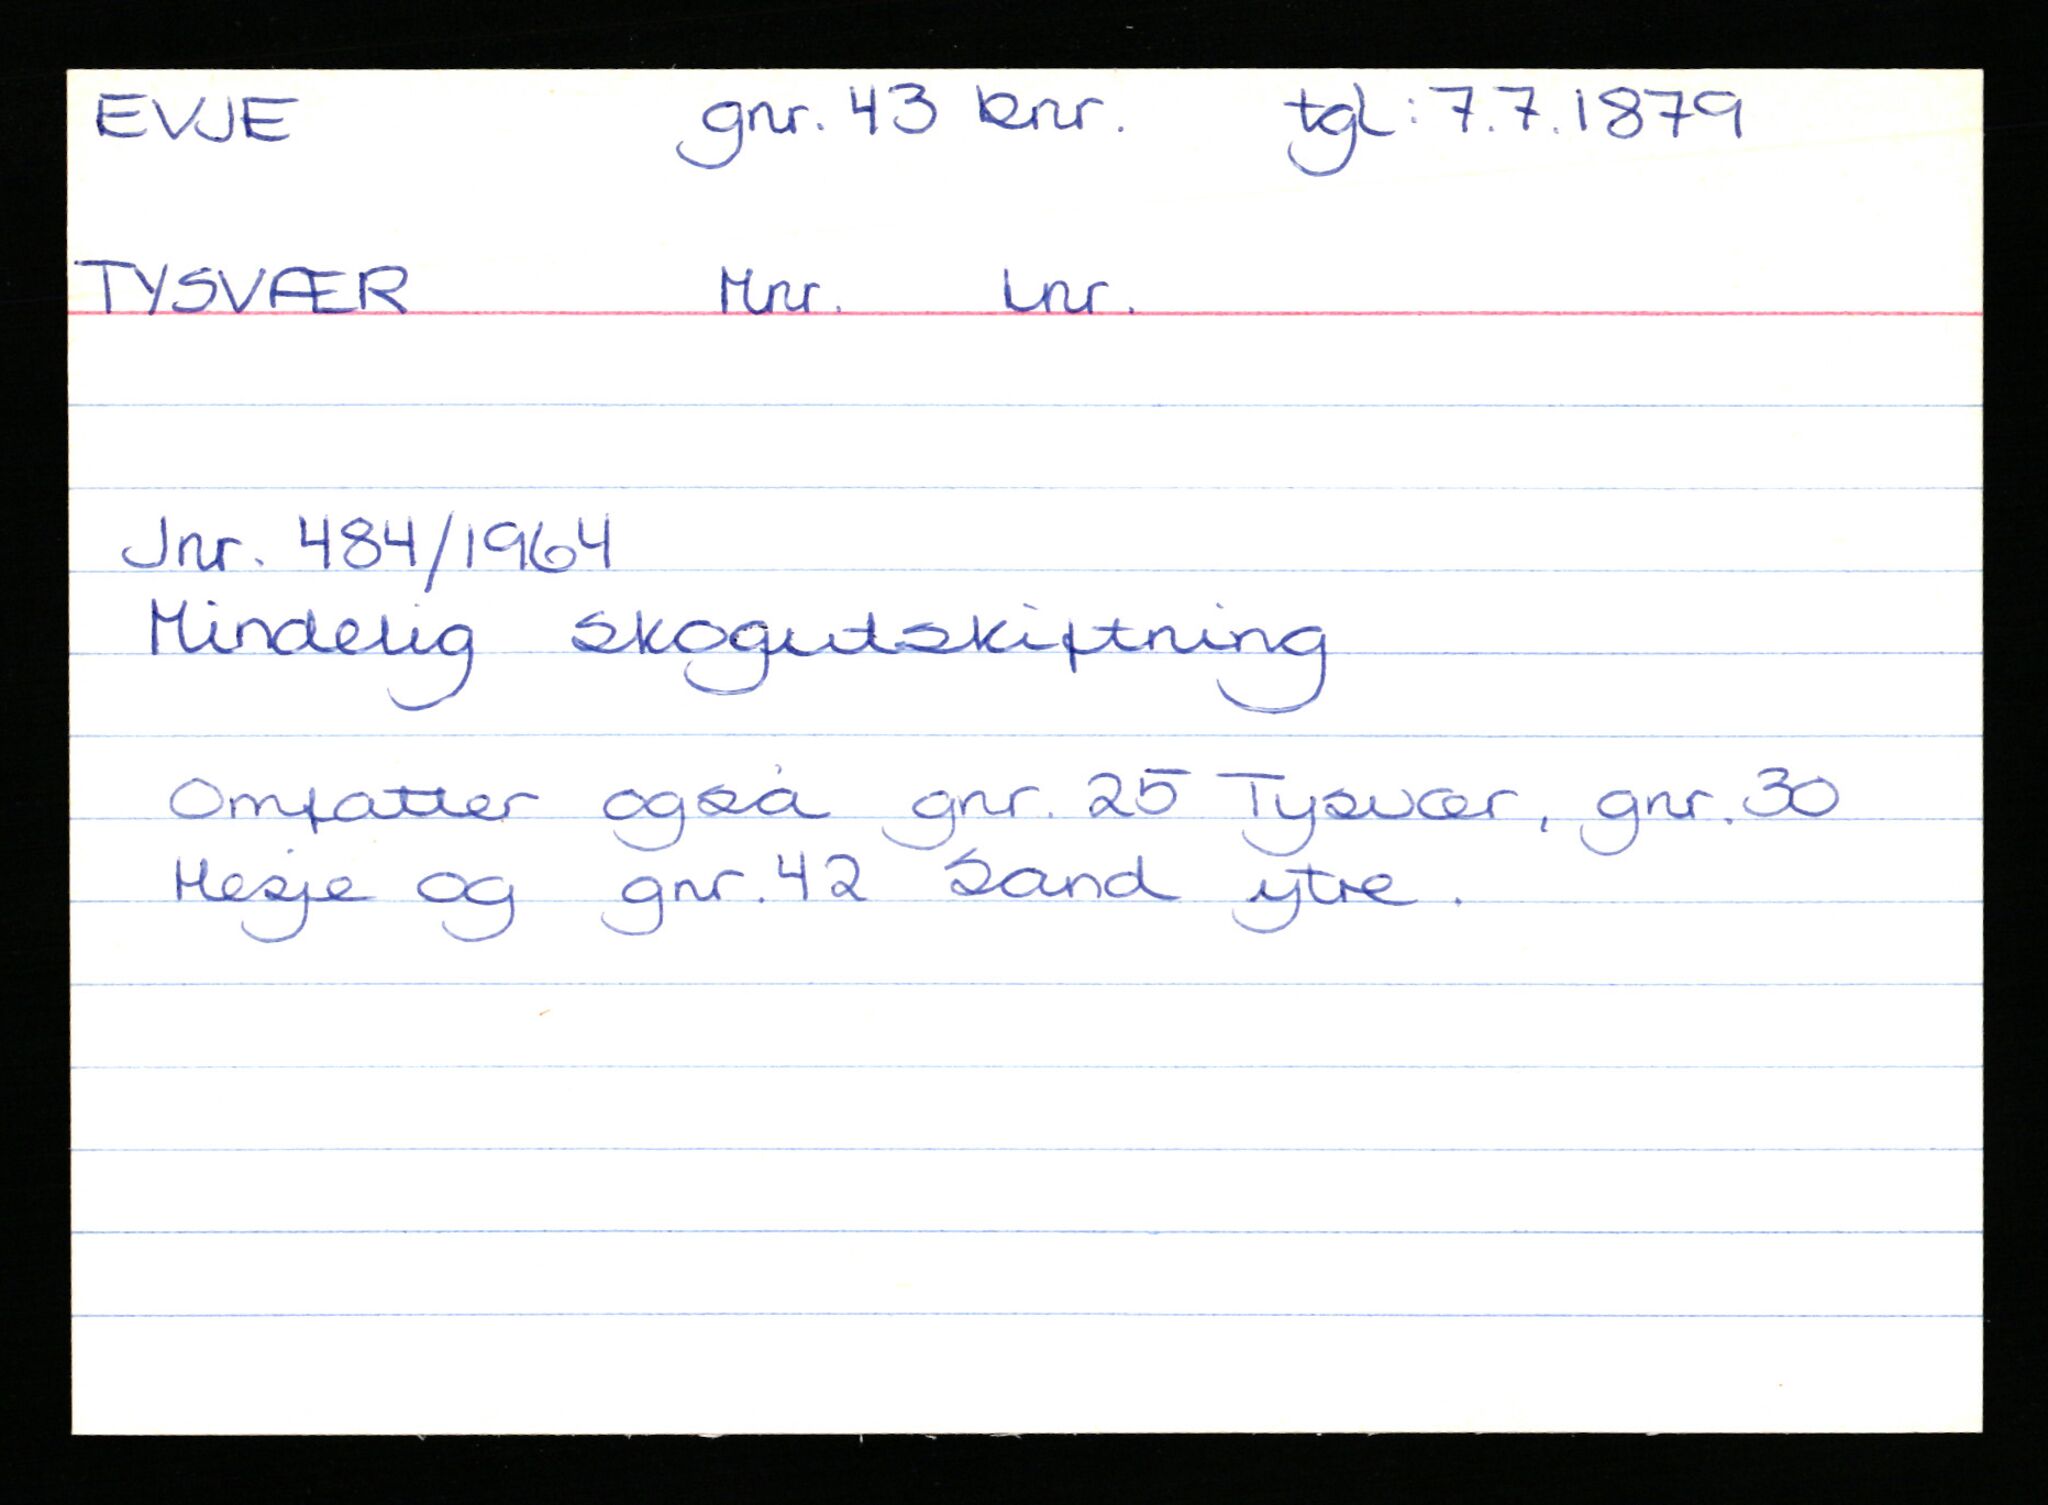 EVJE gnr. 43 bnr. tgl: 7.7.1879
TYSVÆR Mnr. Lnr.
Jnr. 484/1964
Mindelig skogutskiftning
Omfatter også gnr. 25 Tysvær, gnr. 30
Hesje og gnr. 42 Sand ytre.